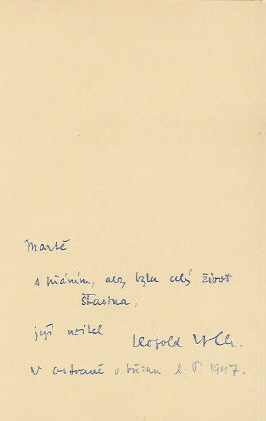 Martě
s přáním, aby byla celý život
šťastna,
její učitel Leopold
V Ostravě v březnu L. P. 1947.